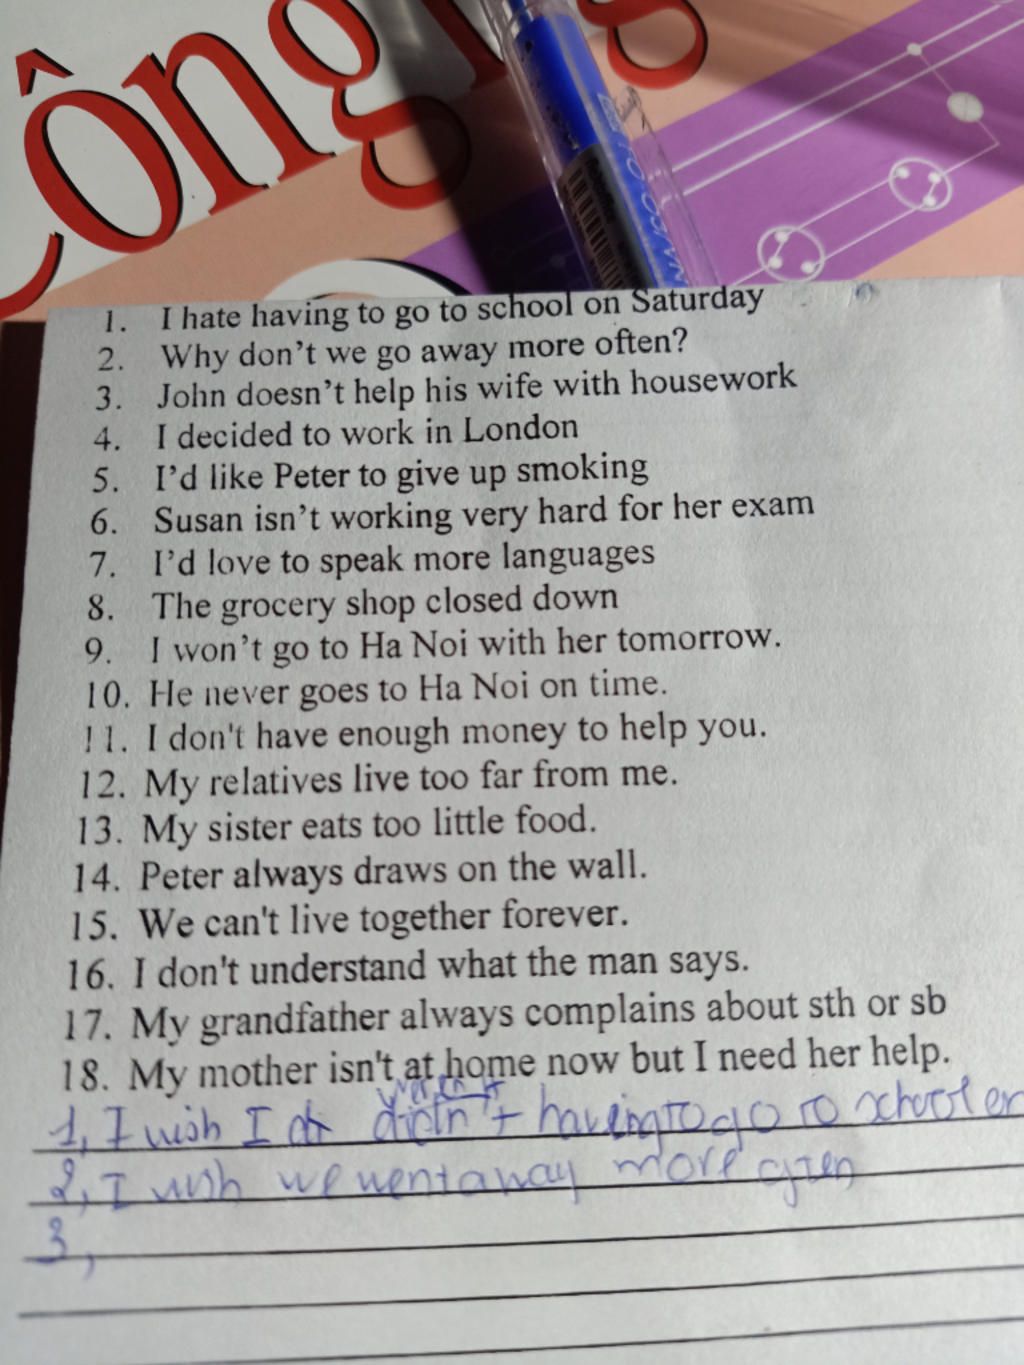 Công
1. I hate having to go to school on Saturday
2. Why don't we go away more often?
3. John doesn't help his wife with housework
4. I decided to work in London
5. I'd like Peter to give up smoking
6. Susan isn't working very hard for her exam
7. I'd love to speak more languages
8. The grocery shop closed down
9. I won't go to Ha Noi with her tomorrow.
10. He never goes to Ha Noi on time.
11. I don't have enough money to help you.
12. My relatives live too far from me.
13. My sister eats too little food.
14. Peter always draws on the wall.
15. We can't live together forever.
16. I don't understand what the man says.
17. My grandfather always complains about sth or sb
18. My mother isn't at home now but I need her help.
weren't
1, I wish I didn't having to go to school on
2, I wish we went away more often
3,